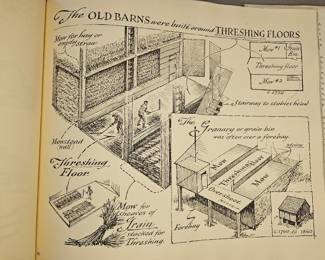 The OLD BARNS were built around THRESHING FLOORS
Mow for hay or
empty straw
Mow #1
Grain
Bin
Threshing floor
Mow #2
c. 1750
Stairway to stables below
Mowstead
(wall)
Threshing
Floor
Mow for
sheaves of
Grain
stacked for
Threshing.
The Granary or grain bin
was often over a forebay.
Mow
Threshing Floor
Mow
Overshoot
Forebay